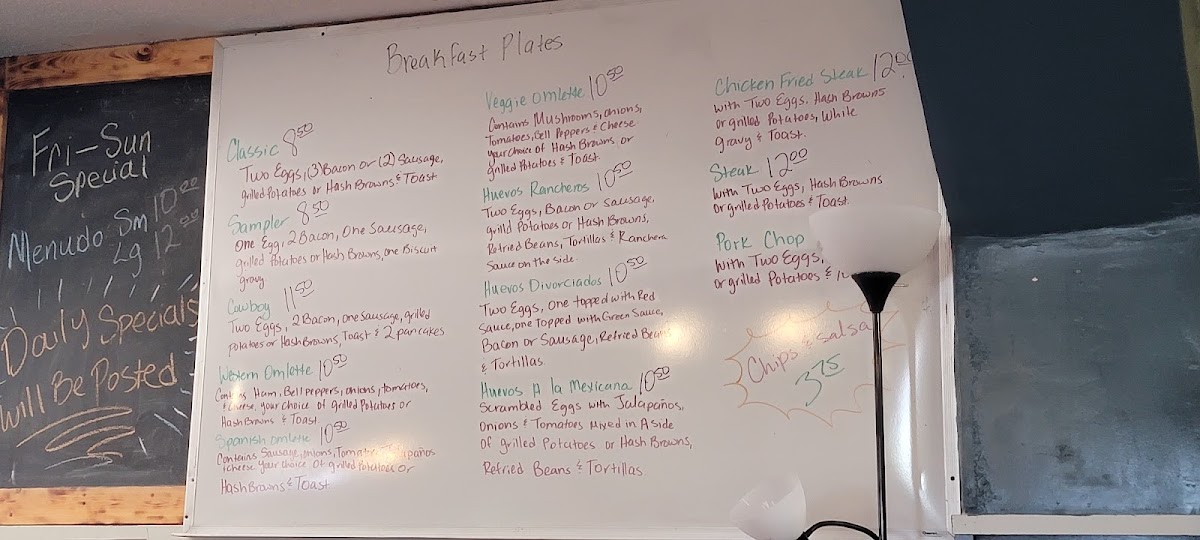 Fri-Sun
Special
Menudo Sm 10.00
Lg 12.00
Daily Specials
Will Be Posted
Breakfast Plates
Classic 8.50
Two Eggs, (3) Bacon or (2) Sausage,
grilled Potatoes or Hash Browns & Toast
Sampler 8.50
One Egg, 2 Bacon, One Sausage,
grilled Potatoes or Hash Browns, one Biscuit
gravy
Cowboy 11.50
Two Eggs, 2 Bacon, one Sausage, grilled
potatoes or Hash Browns, Toast & 2 pancakes
Western Omlette 10.50
Contains Ham, Bell peppers, onions, tomatoes,
& cheese, your choice of grilled Potatoes or
Hash Browns & Toast
Spanish omlette 10.50
Contains Sausage, onions, Tomatoes, Jalapaños
& cheese your choice of grilled potatoes or
Hash Browns & Toast
Veggie omlette 10.50
Contains Mushrooms, onions,
Tomatoes, Bell Peppers & Cheese
your choice of Hash Browns or
grilled Potatoes & Toast.
Huevos Rancheros 10.50
Two Eggs, Bacon or Sausage,
grilld Potatoes or Hash Browns,
Refried Beans, Tortillas & Ranchera
Sauce on the side.
Huevos Divorciados 10.50
Two Eggs, One topped with Red
Sauce, one Topped with Green Sauce,
Bacon or Sausage, Refried Beans
& Tortillas
Huevos A la Mexicana 10.50
Scrambled Eggs with Jalapaños,
Onions & Tomatoes Mixed in A side
Of grilled Potatoes or Hash Browns,
Refried Beans & Tortillas
Chicken Fried Steak 12.00
with Two Eggs, Hash Browns
or grilled Potatoes, White
gravy & Toast.
Steak 12.00
with Two Eggs, Hash Browns
or grilled Potatoes & Toast
Pork Chop
with Two Eggs,
or grilled Potatoes &
Chips & Salsa
3.75